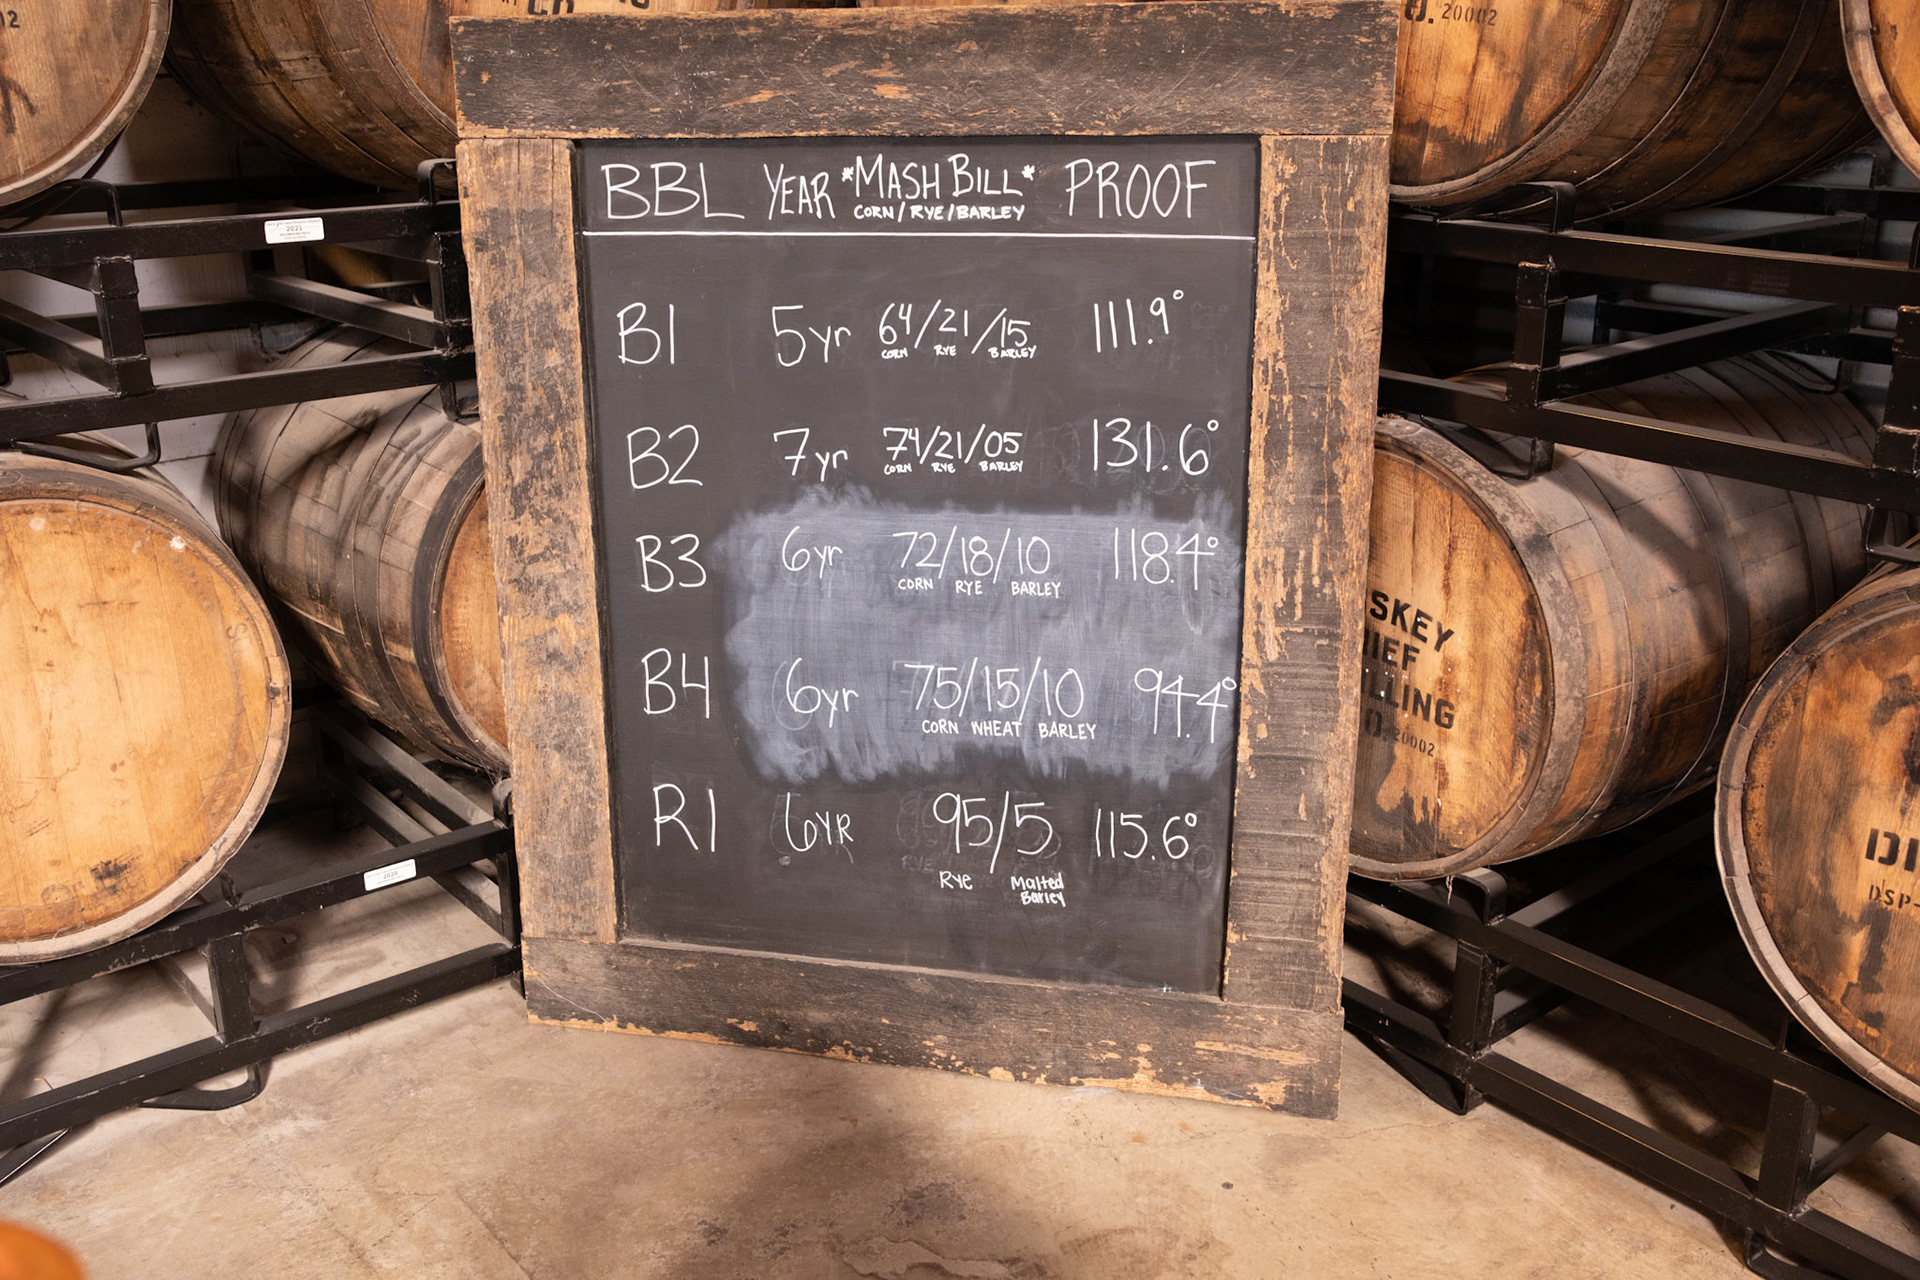 O. 20002
2021
BBL YEAR *MASH BILL* PROOF
CORN / RYE / BARLEY
B1 5yr 64/21/15 111.9°
CORN RYE BARLEY
B2 7yr 74/21/05 131.6°
CORN RYE BARLEY
B3 6yr 72/18/10 118.4°
CORN RYE BARLEY
B4 6yr 75/15/10 94.4°
CORN WHEAT BARLEY
R1 6YR 95/5 115.6°
Rye Malted
Barley
SKEY
IEF
LLING
O. 20002
2020
DI
DSP-